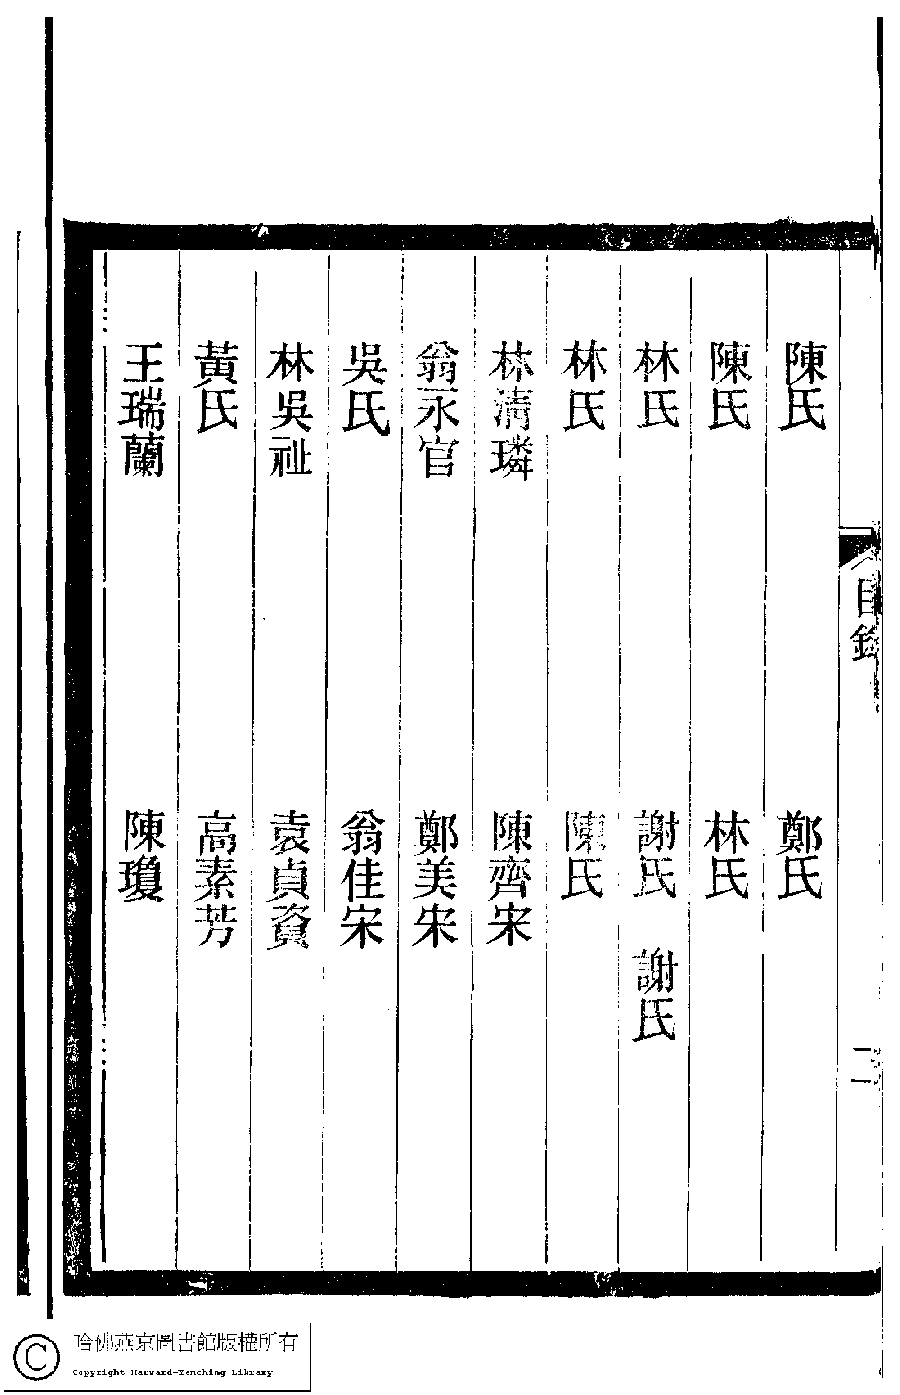 目錄
二
陳氏　鄭氏
陳氏　林氏
林氏　謝氏　謝氏
林氏　陳氏
林清璘　陳齊宋
翁永官　鄭美宋
吳氏　翁佳宋
林吳祉　袁貞資
黃氏　高素芳
王瑞蘭　陳瓊
哈佛燕京圖書館版權所有
Copyright Harvard-Yenching Library